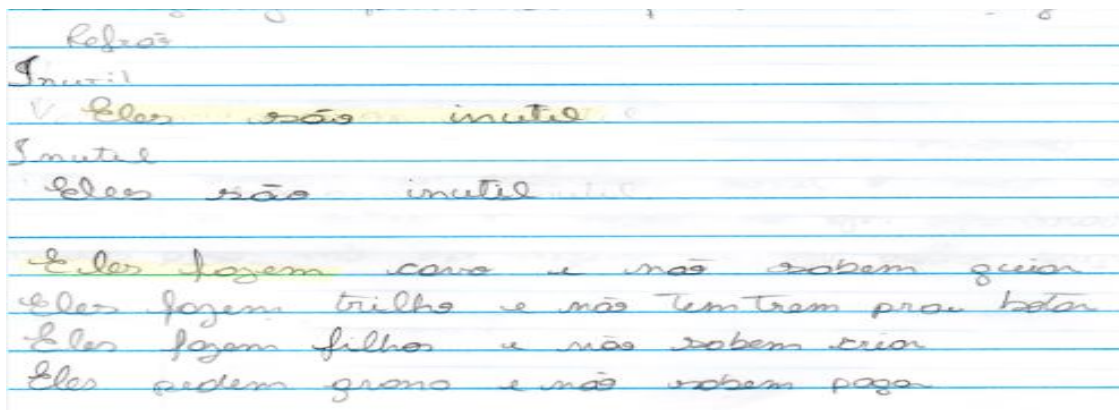 Refrão
Inutil
Eles são inutil
Inutil
Eles são inutil
Eles fazem carro e não sabem guiar
Eles fazem trilho e não tem trem prau botar
Eles fazem filhos e não sabem criar
Eles pedem grana e não sabem pagar